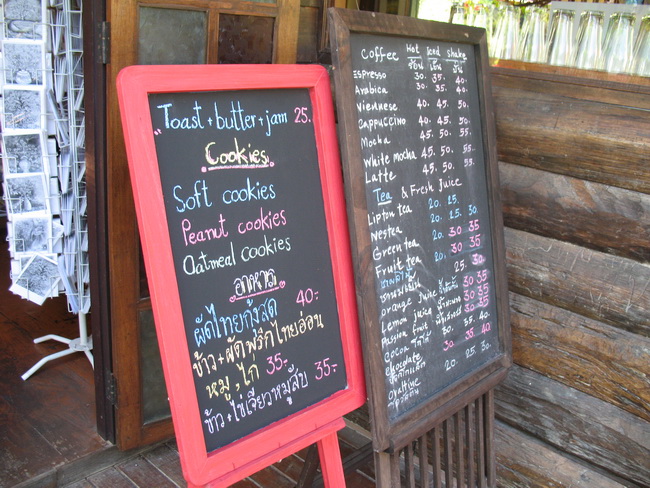 Toast + butter + jam 25.
Cookies
Soft cookies
Peanut cookies
Oatmeal cookies
อาหาร
ผัดไทยกุ้งสด 40.-
ข้าว + ผัดพริกไทยอ่อน
หมู, ไก่ 35.-
ข้าว + ไข่เจียวหมูสับ 35.-
Coffee Hot Iced Shake
ร้อน เย็น ปั่น
Espresso 30. 35. 40.
Arabica 30. 35. 40.
Viennese 40. 45. 50.
Cappuccino 40. 45. 50.
Mocha 45. 50. 55.
White mocha 45. 50. 55.
Latte 45. 50. 55.
Tea & Fresh Juice
Lipton tea 20. 25.
Nestea 20. 25. 30
Green tea 30 35.
Fruit tea 30 35.
20. 25. 30.
Orange Juice 30 35.
Lemon Juice 30 35.
Passion fruit 30 35.
Cocoa โกโก้ 30. 35. 40.
Chocolate 30. 35. 40.
Ovaltine 20. 25. 50.
โอวัลติน